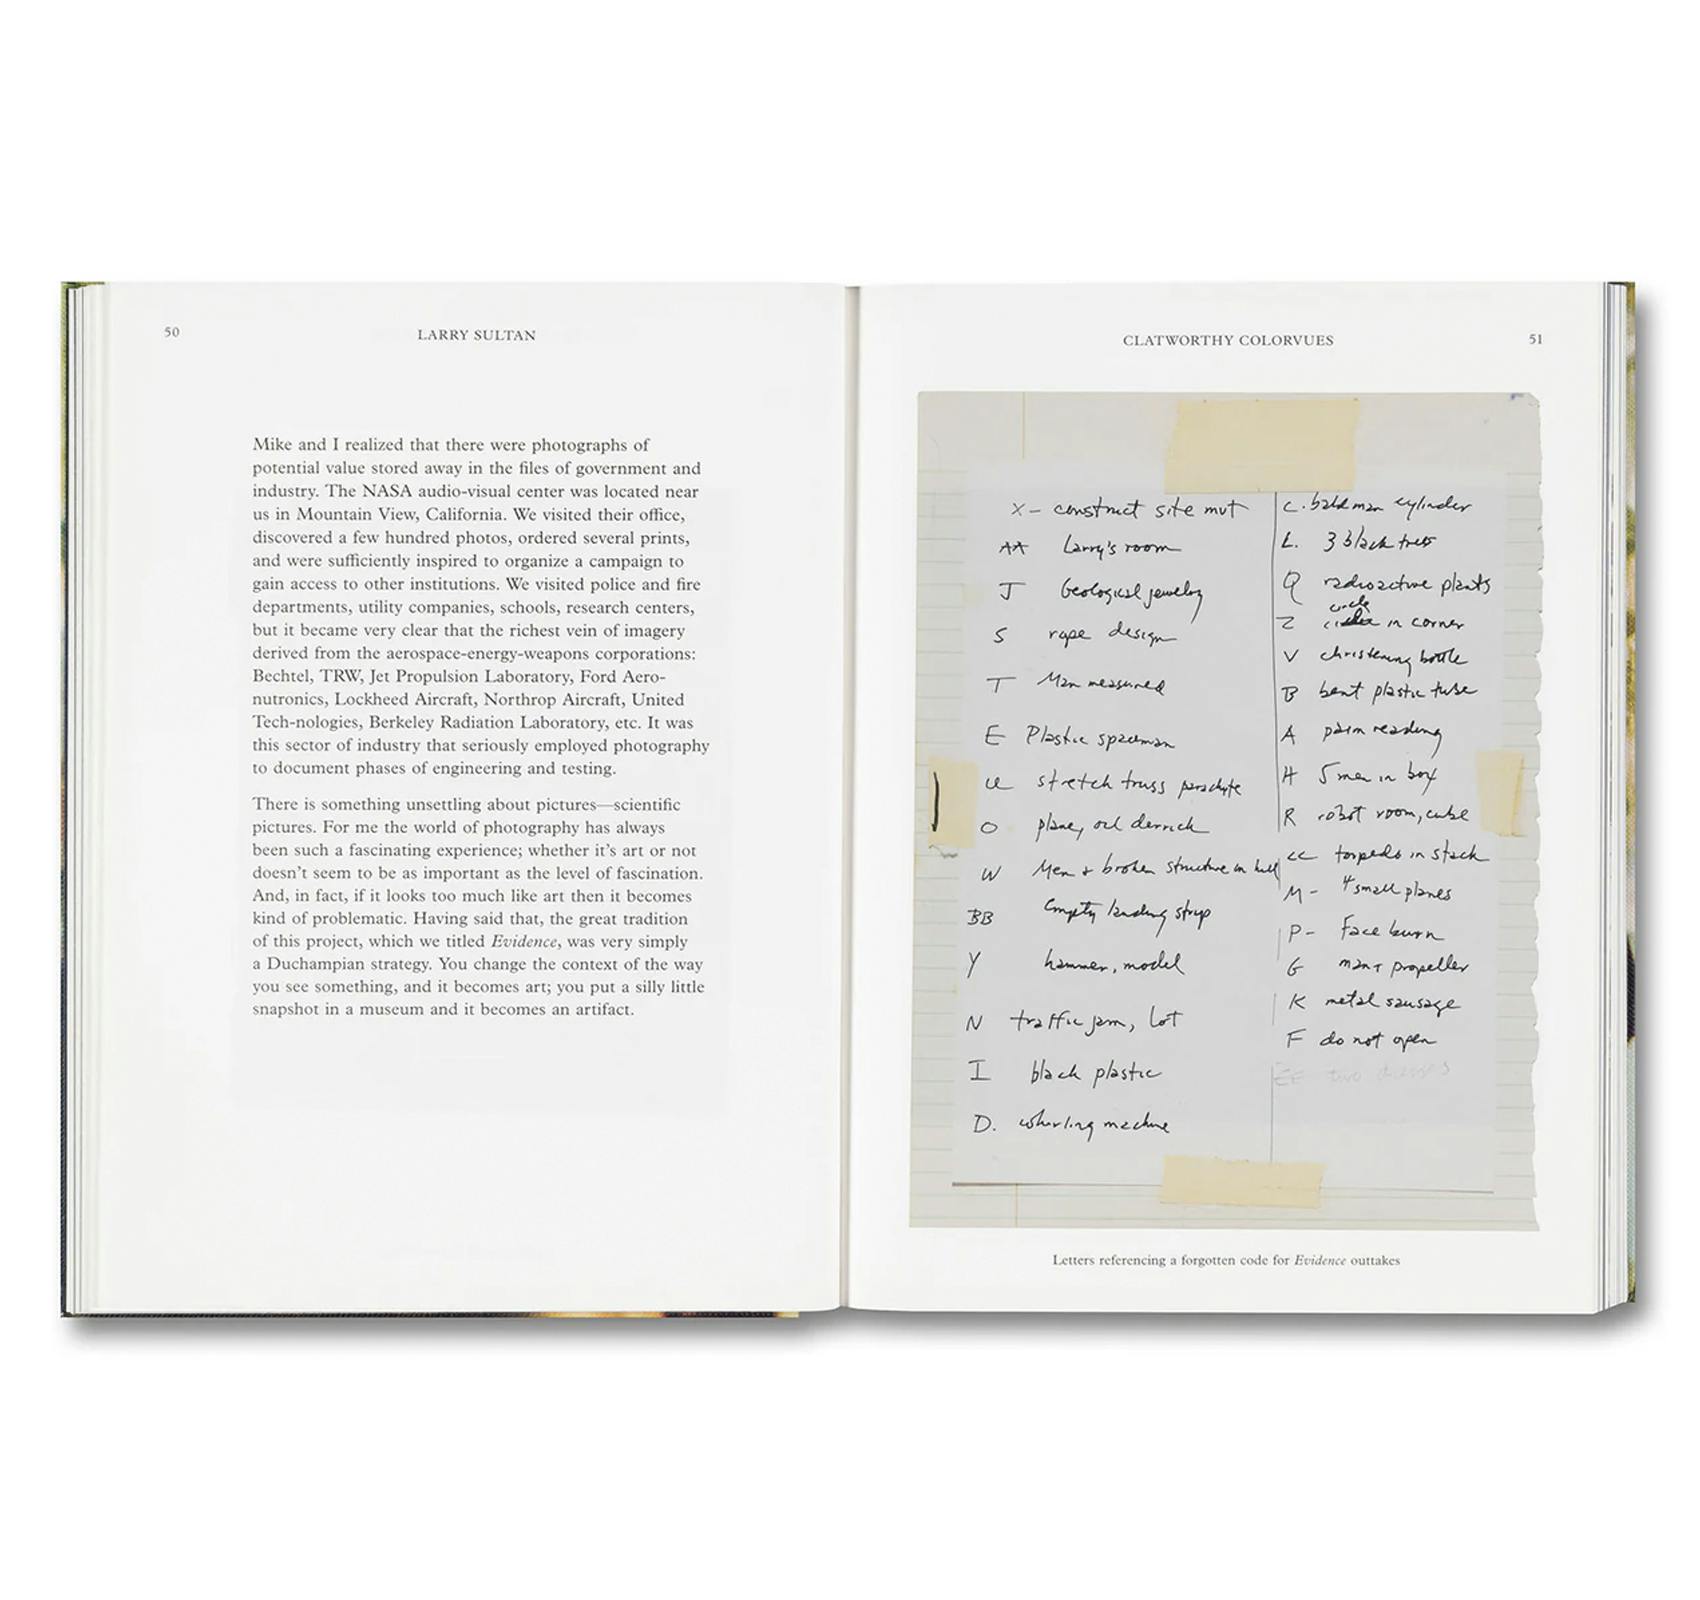 50
LARRY SULTAN
Mike and I realized that there were photographs of
potential value stored away in the files of government and
industry. The NASA audio-visual center was located near
us in Mountain View, California. We visited their office,
discovered a few hundred photos, ordered several prints,
and were sufficiently inspired to organize a campaign to
gain access to other institutions. We visited police and fire
departments, utility companies, schools, research centers,
but it became very clear that the richest vein of imagery
derived from the aerospace-energy-weapons corporations:
Bechtel, TRW, Jet Propulsion Laboratory, Ford Aero-
nutronics, Lockheed Aircraft, Northrop Aircraft, United
Tech-nologies, Berkeley Radiation Laboratory, etc. It was
this sector of industry that seriously employed photography
to document phases of engineering and testing.
There is something unsettling about pictures—scientific
pictures. For me the world of photography has always
been such a fascinating experience; whether it's art or not
doesn't seem to be as important as the level of fascination.
And, in fact, if it looks too much like art then it becomes
kind of problematic. Having said that, the great tradition
of this project, which we titled Evidence, was very simply
a Duchampian strategy. You change the context of the way
you see something, and it becomes art; you put a silly little
snapshot in a museum and it becomes an artifact.
CLATWORTHY COLORVUES
51
X - construct site mut
AA Larry's room
J Geological jewelry
S rope design
T Man measured
E Plastic spaceman
U stretch truss parachute
O plane, oil derrick
W Men + broken structure in hull
BB Empty landing strip
Y hammer, model
N traffic jam, lot
I black plastic
D. whirling machine
C. bald man cylinder
L. 3 black trees
Q radioactive plants
circle
Z in corner
V christening bottle
B bent plastic tube
A palm reading
H 5 men in box
R robot room, cube
CC torpedo in stack
M - 4 small planes
P - Face burn
G man + propeller
K metal sausage
F do not open
EE two
Letters referencing a forgotten code for Evidence outtakes